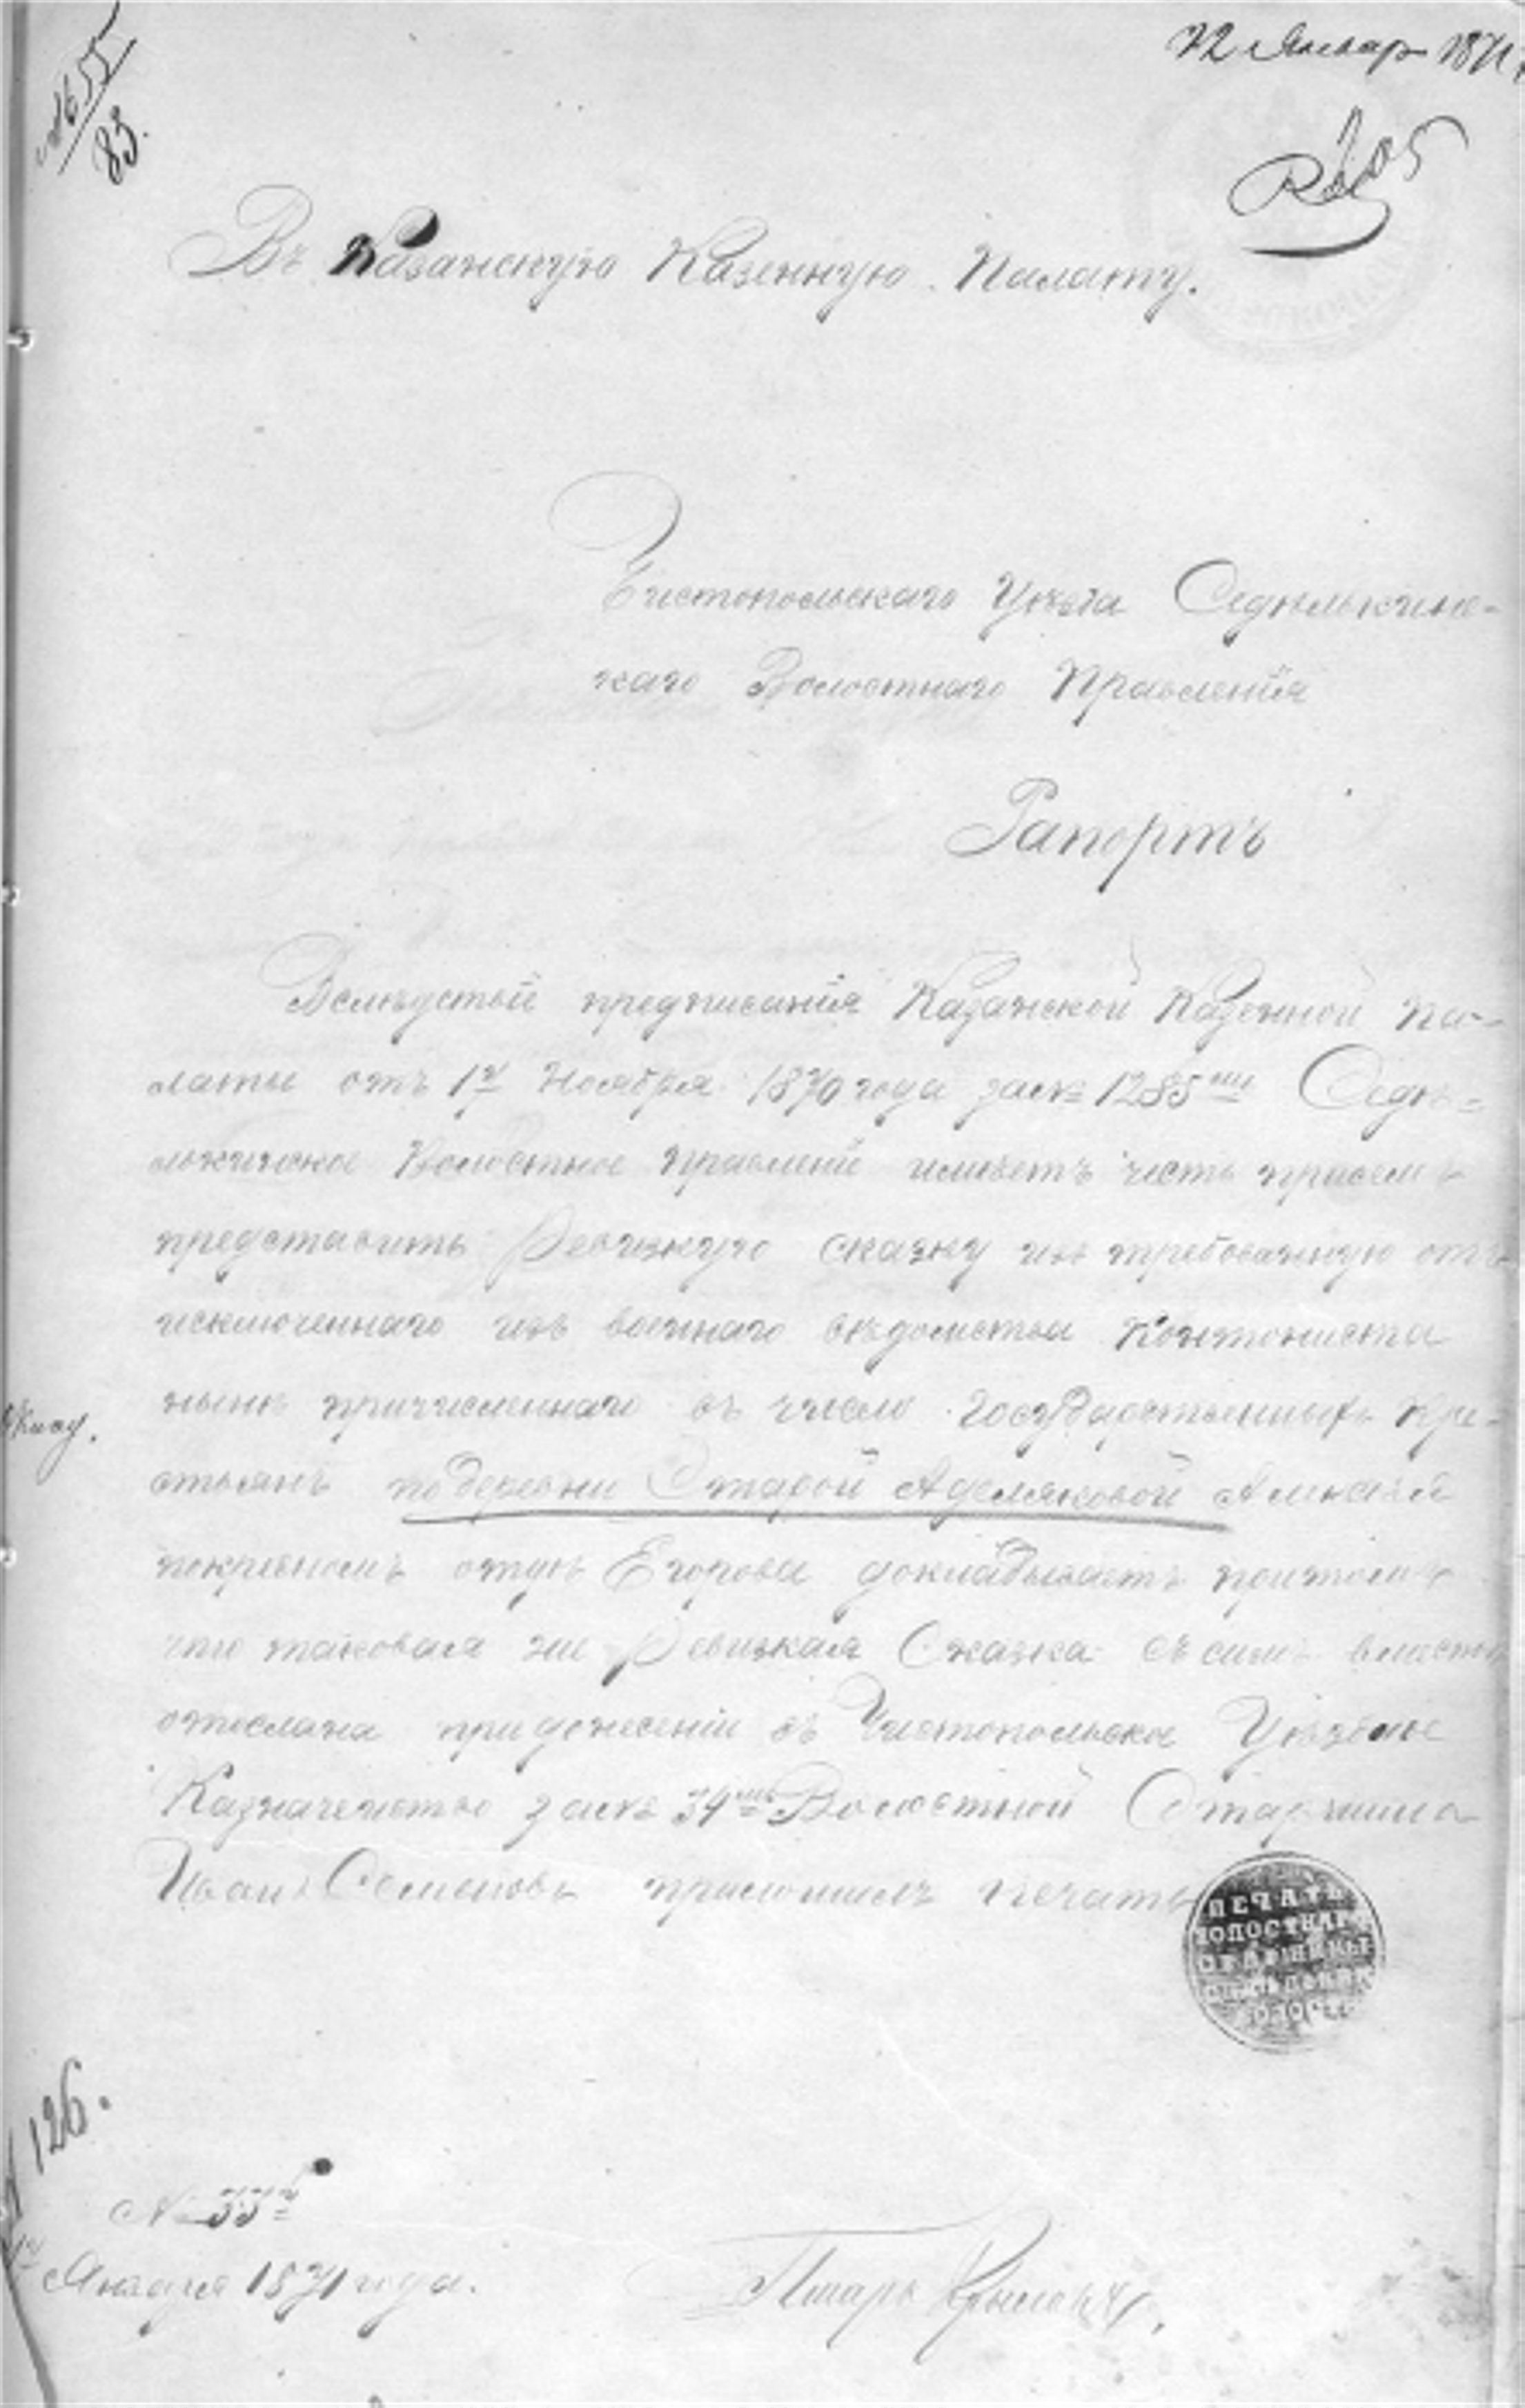 № 655
83.
22 Январ 1871
В 205
Въ Казанскую Казенную Палату.
Чистопольскаго Уѣзда Седѣлькинс-
каго Волостнаго Правленія
Рапортъ
Вслѣдствіе предписанія Казанской Казенной Па-
латы отъ 17 Ноября 1870 года за № 1285мъ Седѣ-
лькинское Волостное правленіе имѣетъ честь присемъ
представить Ревизкую сказку истребованную отъ
исключеннаго изъ военнаго вѣдомства Контониста
нынѣ причисленнаго въ число Государственныхъ кре-
стьянъ по деревни Старой Адемяковой Алексѣя
покрѣсномъ отцѣ Егорова докладываетъ притомъ
что таковая же Ревизкая Сказка съ симъ вместѣ
отослана придонесеніи въ Чистопольское Уѣздное
Казначейство за № 34мъ Волостной Старшина
Иванъ Семеновъ приложилъ печать
ПЕЧАТЬ
ВОЛОСТНАГО
СТАРШИНЫ
ВОЛОСТИ
126.
№ 33
Января 1871 года.
Писарь Крыловъ